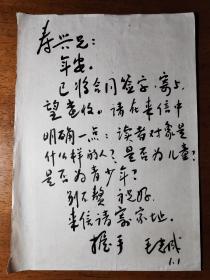 寿兴兄：
年安。
已将合同签字，寄上，
望查收。请在来信中
明确一点：读者对象是
什么样的人？是否为儿童？
是否为青少年？
别不赘 祝好。
来信请寄家址。
握手
1.1